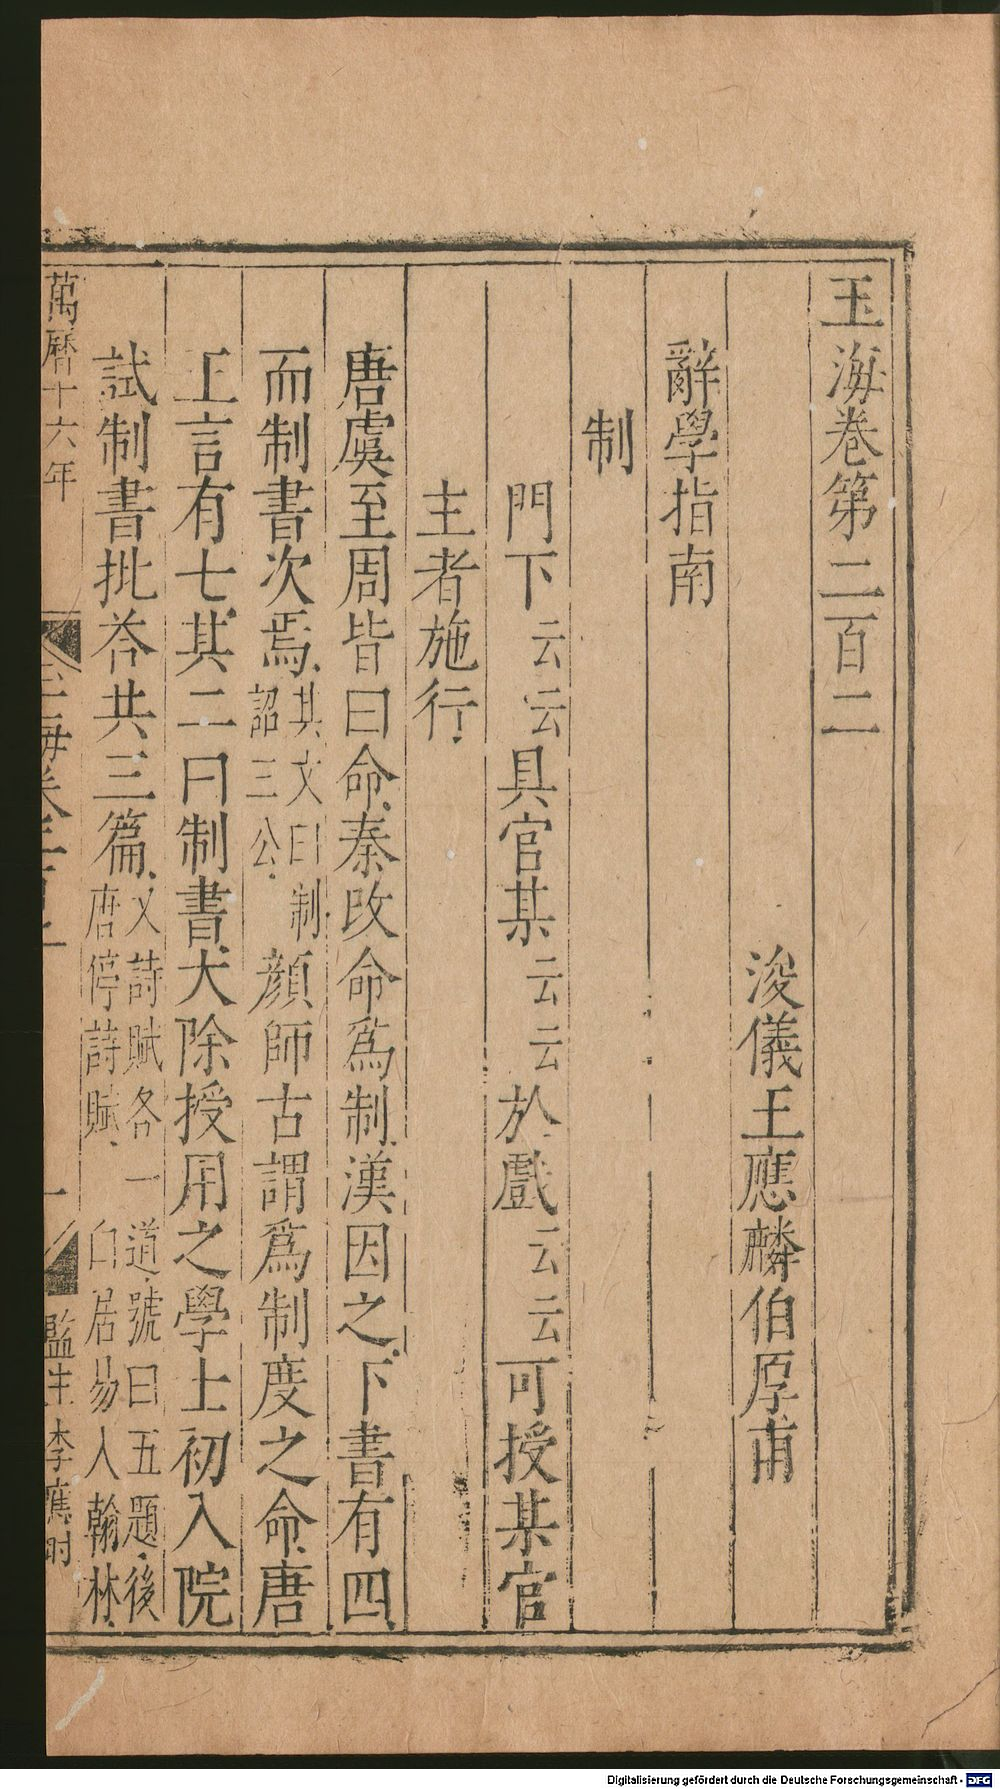 玉海卷第二百二
浚儀王應麟伯厚甫
辭學指南
制
門下云云具官某云云於戲云云可授某官
主者施行
唐虞至周皆曰命秦改命爲制漢因之下書有四
而制書次焉其文曰制詔三公顏師古謂爲制度之命唐
王言有七其二曰制書大除授用之學士初入院
試制書批荅共三篇又詩賦各一道號曰五題後唐停詩賦白居易入翰林
萬曆十六年
監生李應时
Digitalisierung gefördert durch die Deutsche Forschungsgemeinschaft - DFG